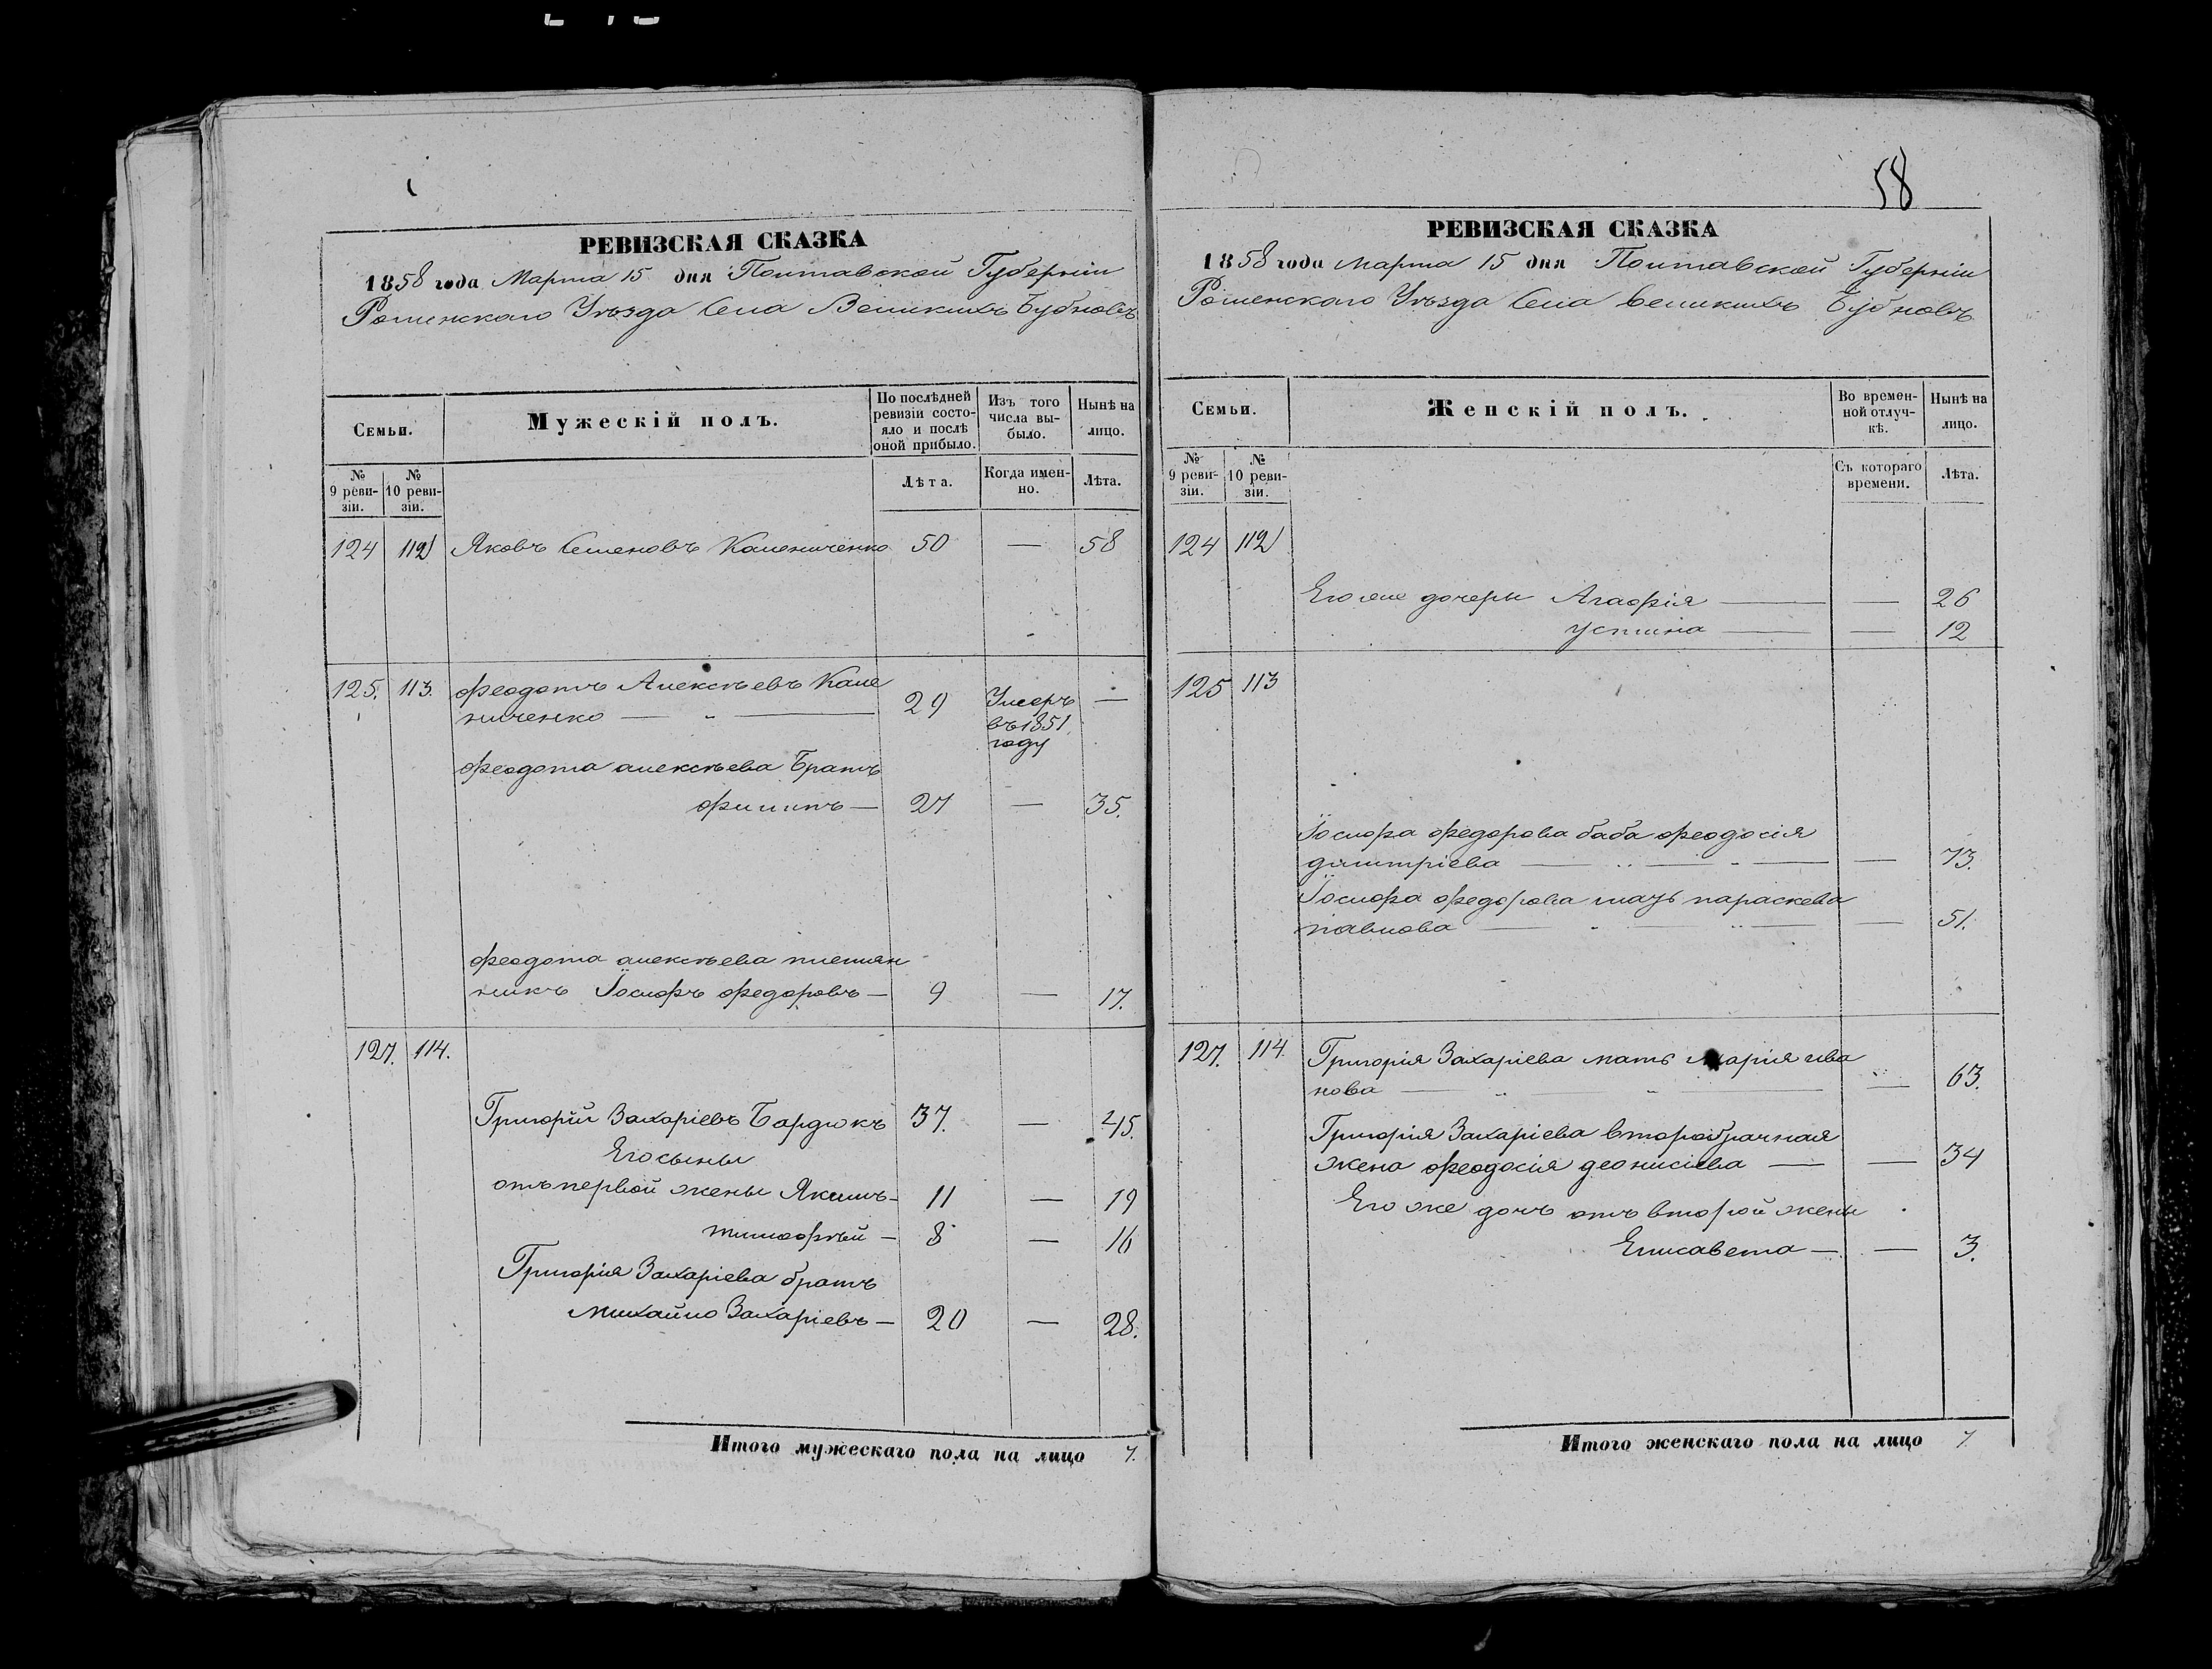 58
РЕВИЗСКАЯ СКАЗКА
1858 года Марта 15 дня Полтавской Губерніи
Роменскаго Уѣзда Села Великихъ Бубновъ
Семьи.
Мужескій полъ.
По послѣдней ревизіи состояло и послѣ оной прибыло.
Изъ того числа выбыло.
Нынѣ на лицо.
№ 9 ревизіи.
№ 10 ревизіи.
Лѣта.
Когда именно.
Лѣта.
124 112 Яковъ Семеновъ Калениченко 50 — 58
125. 113. Феодотъ Алексѣевъ Кале
ниченко — 29 Умеръ —
въ 1851
году
Феодота алексѣева Братъ
Филипъ — 27 — 35.
Феодота алексѣева племян
никъ Іосифъ Федоровъ — 9 — 17.
127. 114.
Григорій Захаріевъ Бардюкъ 37. — 45.
Его сыны
отъ первой жены Якимъ — 11 — 19
тимофѣй — 8 — 16
Григорія Захаріева братъ
Михайло Захаріевъ — 20 — 28.
Итого мужескаго пола на лицо 7.
РЕВИЗСКАЯ СКАЗКА
1858 года Марта 15 дня Полтавской Губерніи
Роменскаго Уѣзда Села Великихъ Бубновъ
Семьи.
Женскій полъ.
Во временной отлучкѣ.
Нынѣ на лицо.
№ 9 ревизіи.
№ 10 ревизіи.
Съ котораго времени.
Лѣта.
124 112
Его же дочери Агафія — — 26
устина — — 12
125 113
Іосифа Федорова баба Феодосія
димитріева — — 73.
Іосифа Федорова мать параскева
павлова — — 51.
127. 114. Григорія Захаріева мать Марія ива
нова — — 63.
Григорія Захаріева второбрачная
жена Феодосія деонисіева — — 34
Его же дочь отъ второй жены
Елисавета — — 3.
Итого женскаго пола на лицо 7.